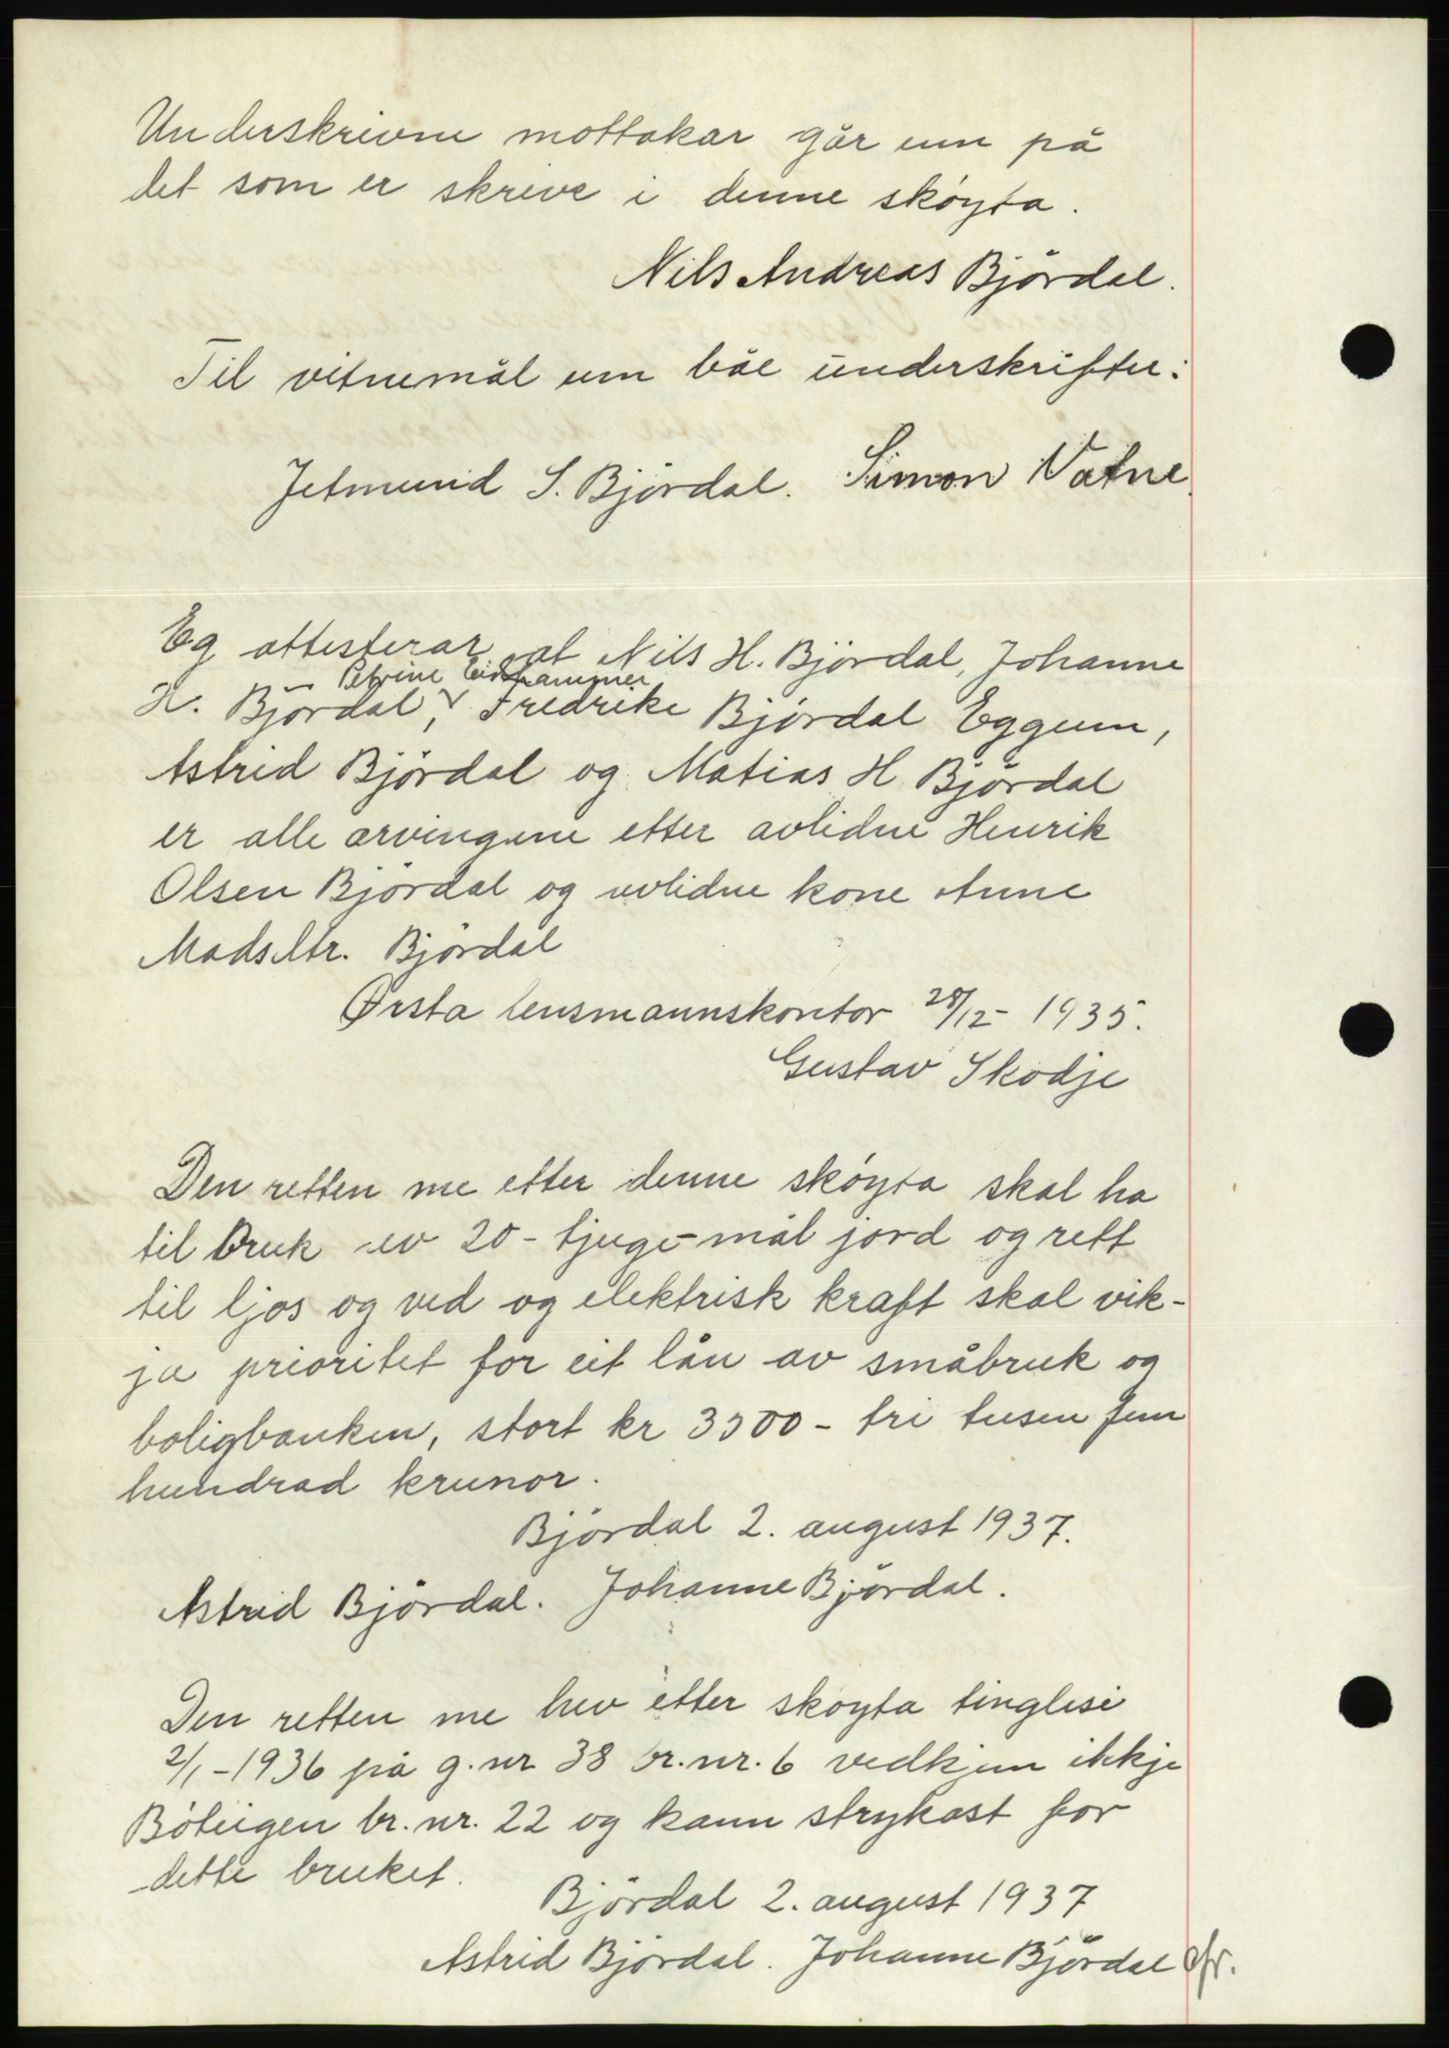 Underskrivne mottakar går um på
det som er skreve i denne skøyta.
Nils Andreas Bjørdal.
Til vitnemål um båe underskrifter:
Jetmund S. Bjørdal. Simon Vatne.
Eg attesterar at Nils H. Bjørdal, Johanne
Petrine Eidhammer
H. Bjørdal, v Fredrike Bjørdal Eggum,
Astrid Bjørdal og Matias H Bjørdal
er alle arvingene etter avlidne Henrik
Olsen Bjørdal og avlidne kone Anne
Madsdtr. Bjørdal
Ørsta lensmannskontor 28/12- 1935.
Gustav Skodje
Den retten me etter denne skøyta skal ha
til bruk av 20 - tjuge - mål jord og rett
til ljos og ved og elektrisk kraft skal vik-
ja prioritet for eit lån av småbruk og
boligbanken, stort kr 3500 - tri tusen fem
hundrad krunor.
Bjørdal 2. august 1937.
Astrid Bjørdal. Johanne Bjørdal.
Den retten me hev etter skøyta tinglesi
2/1-1936 på g.nr 38 br.nr. 6 vedkjem ikkje
br.nr. 22 og kann strykast for
dette bruket.
Bjørdal 2. august 1937
Astrid Bjørdal. Johanne Bjørdal